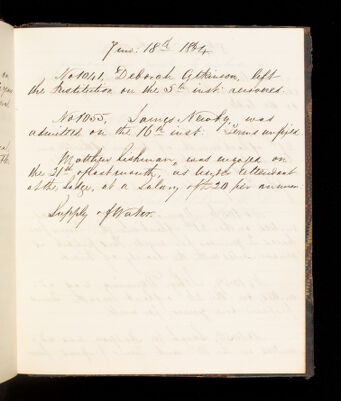 18th 1864.
No 1041, Deborah Atkinson, left
the Institution on the 5th inst: recovered.
No 1055, James was
admitted on the 16th inst:
Matthew was engaged on
the 31st of last month, as Attendant
at the Lodge, at a Salary of £20 per annum.
Supply of Water.